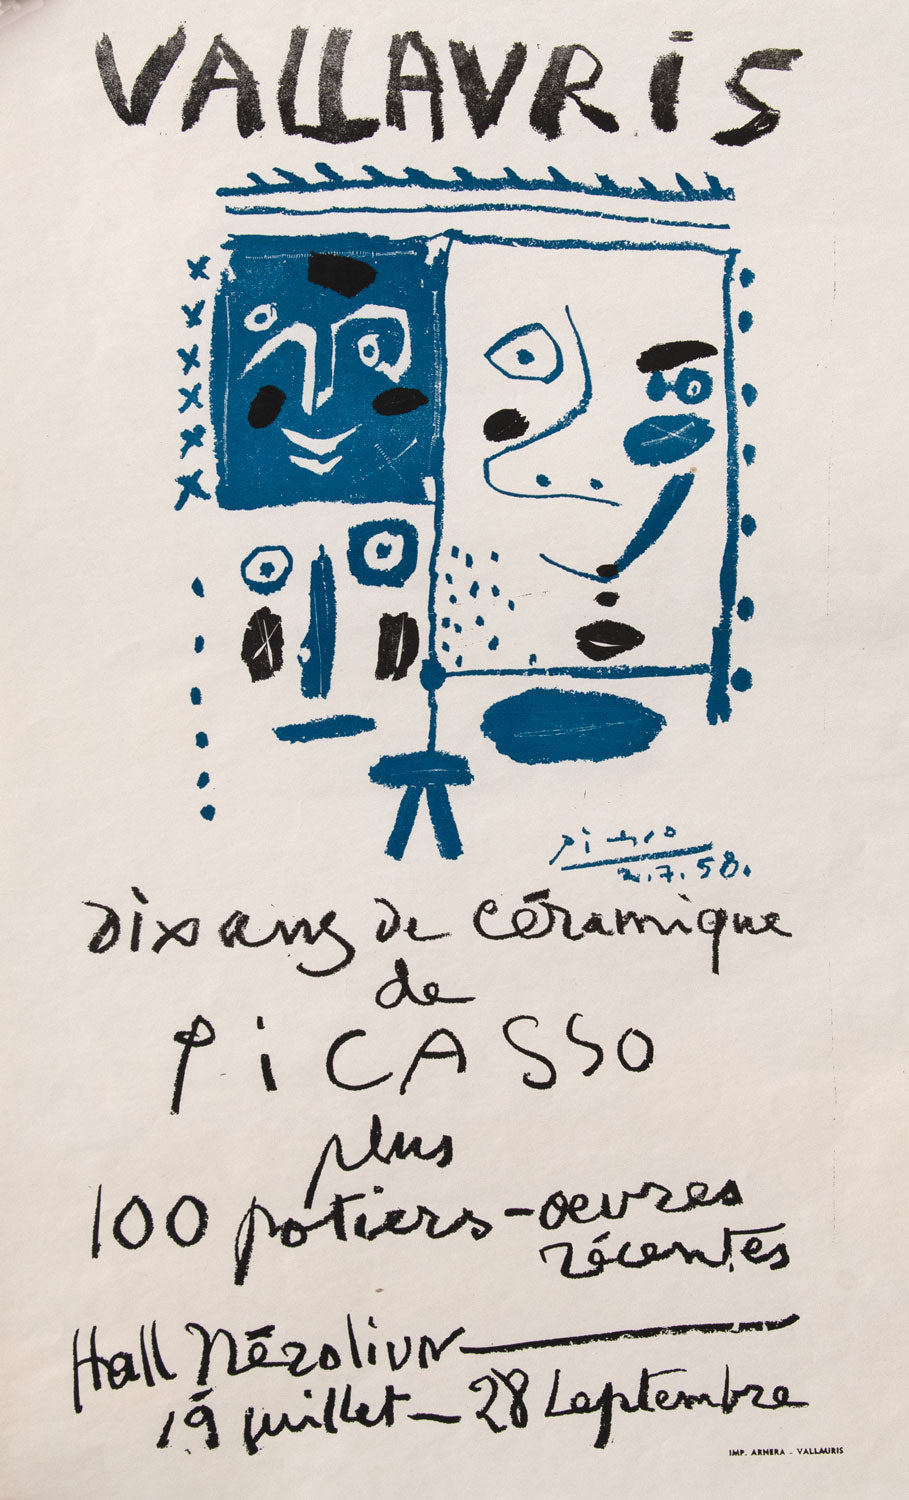 VALLAURiS
picasso
2.7.58.
Dix ans de céramique
de
PiCASSO
plus
100 potiers - oeuvres
récentes
Hall Nérolium
19 juillet - 28 Septembre
IMP. ARNERA - VALLAURIS